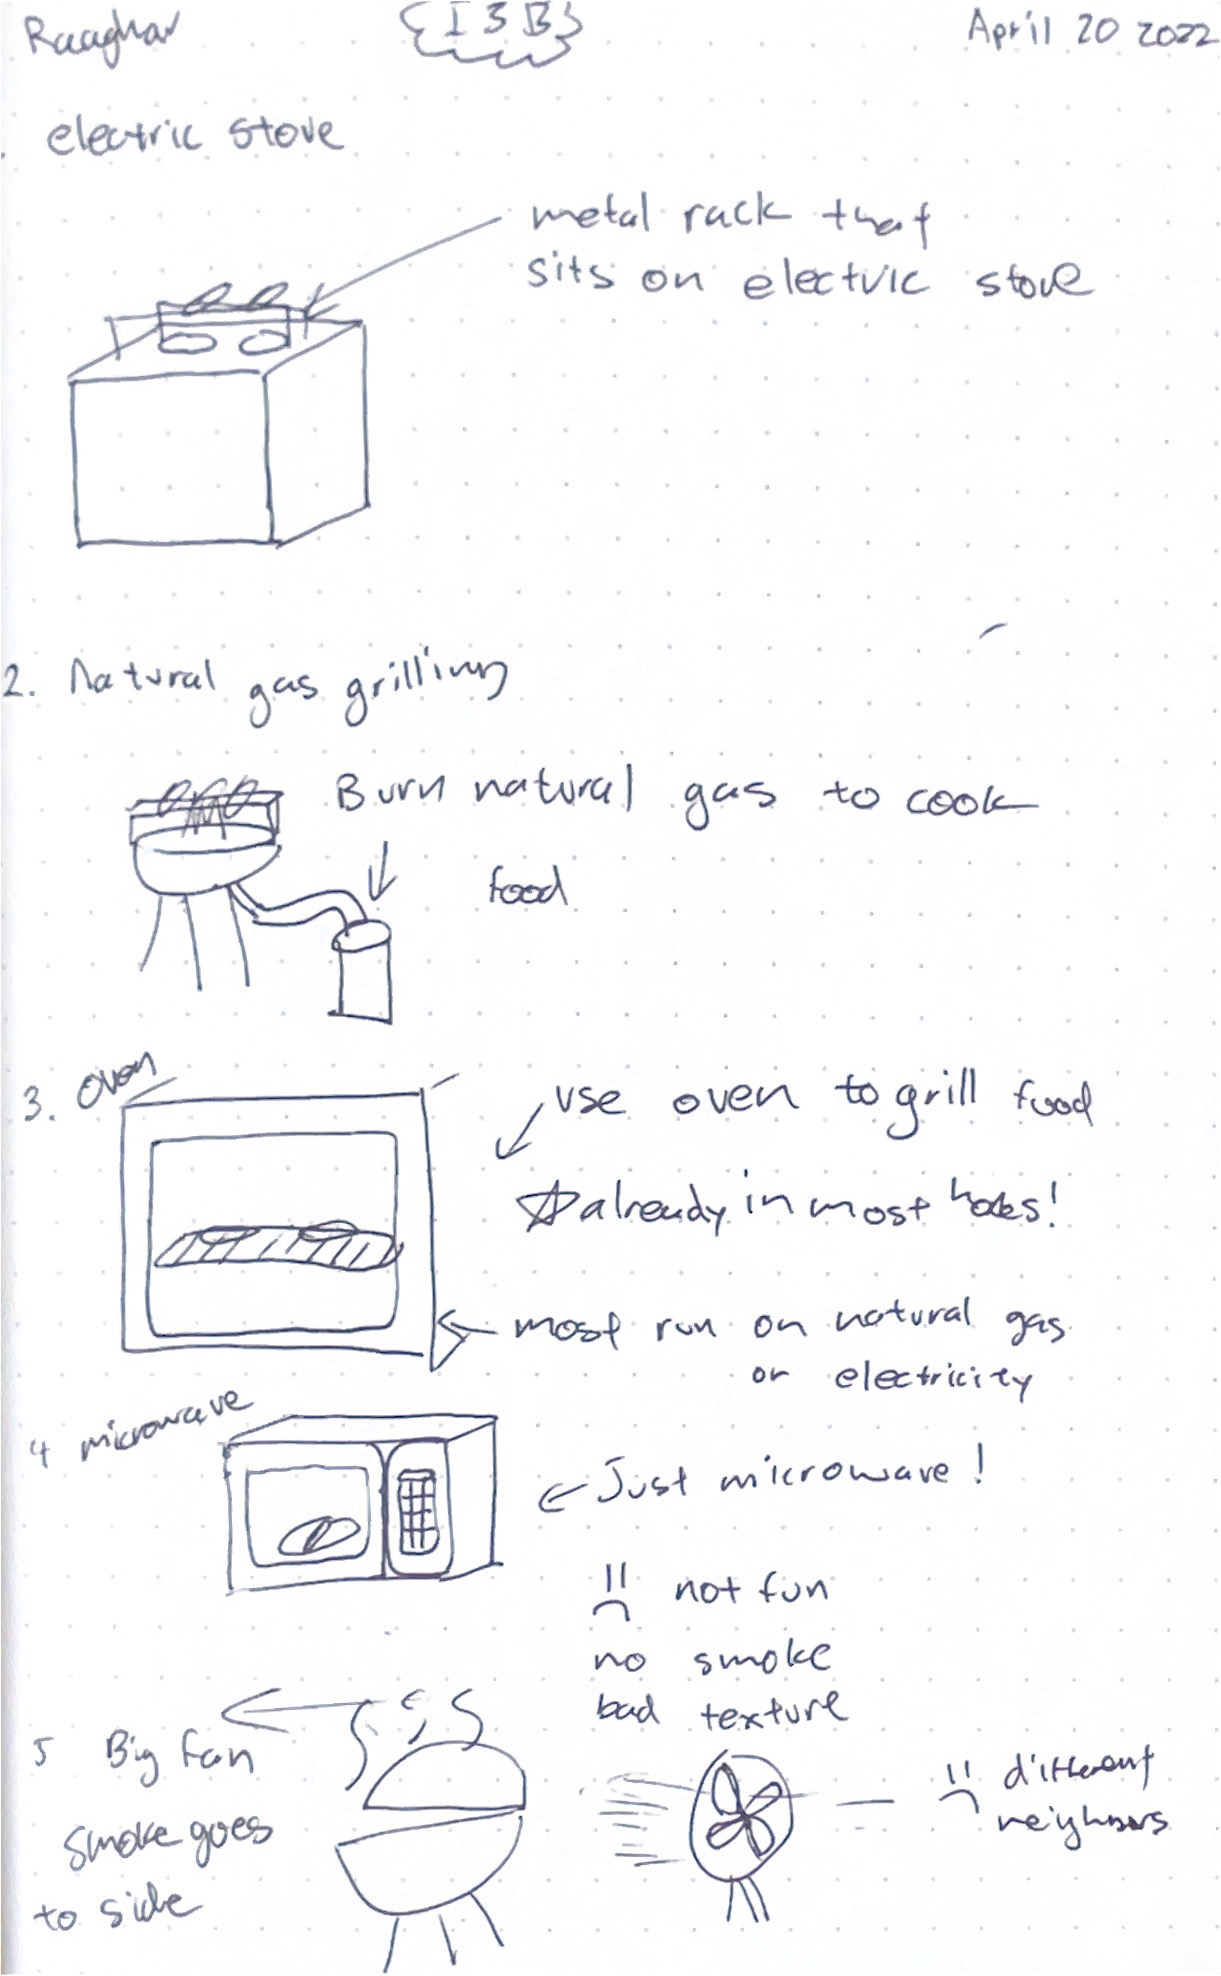 Raaghav
I 3 B
April 20 2022
electric stove
metal rack that
sits on electric stove
2. Natural gas grilling
Burn natural gas to cook
food
3. Oven
use oven to grill food
already in most
most run on natural gas
or electricity
4 microwave
Just microwave!
not fun
no smoke
bad texture
5 Big fan
smoke goes
to side
different
neighbors